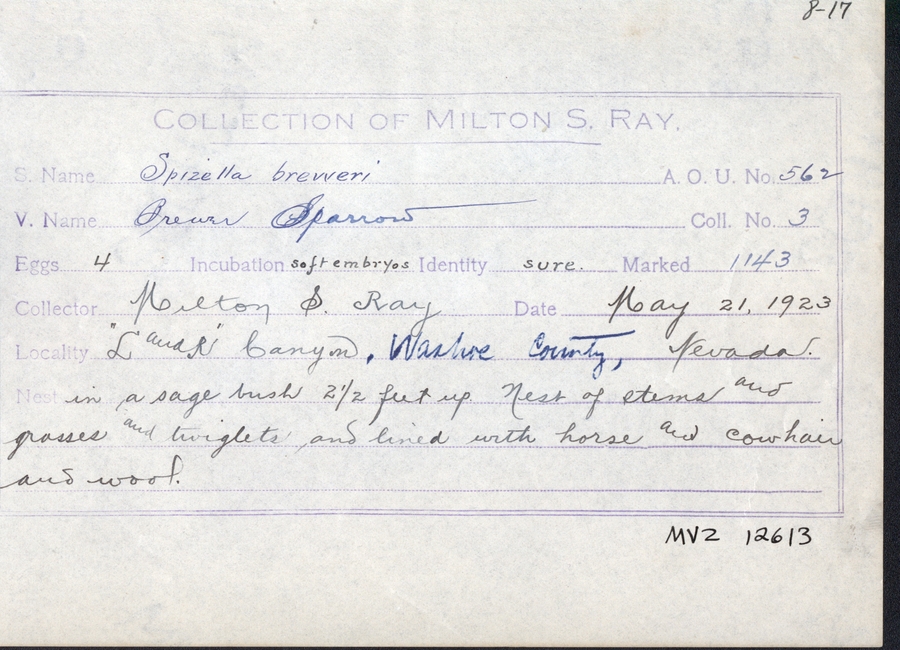 8-17
COLLECTION OF MILTON S. RAY.
S. Name Spizella breweri A. O. U. No. 562
V. Name Brewer Sparrow Coll. No. 3
Eggs 4 Incubation soft embryos Identity sure. Marked 1143
Collector Milton S. Ray Date May 21, 1923
Locality "L and R" Canyon, Washoe County, Nevada.
Nest in a sage bush 2 1/2 feet up Nest of stems and
grasses and twiglets and lined with horse and cowhair
and wool.
MVZ 12613